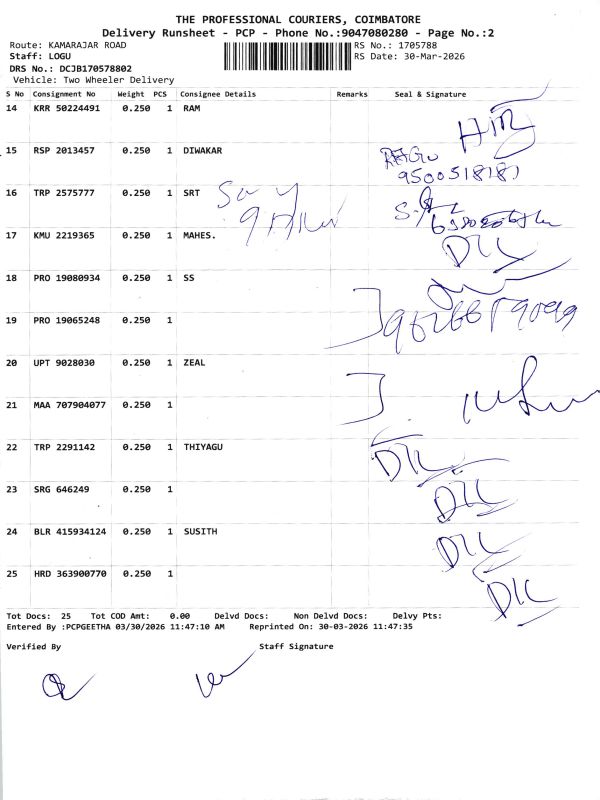 THE PROFESSIONAL COURIERS, COIMBATORE
Delivery Runsheet - PCP - Phone No.:9047080280 - Page No.:2
Route: KAMARAJAR ROAD RS No.: 1705788
Staff: LOGU RS Date: 30-Mar-2026
DRS No.: DCJB170578802
Vehicle: Two Wheeler Delivery
S No Consignment No Weight PCS Consignee Details Remarks Seal & Signature
14 KRR 50224491 0.250 1 RAM
15 RSP 2013457 0.250 1 DIWAKAR
9500518181
16 TRP 2575777 0.250 1 SRT
17 KMU 2219365 0.250 1 MAHES.
DIL
18 PRO 19080934 0.250 1 SS
19 PRO 19065248 0.250 1
20 UPT 9028030 0.250 1 ZEAL
21 MAA 707904077 0.250 1
22 TRP 2291142 0.250 1 THIYAGU
DIL
23 SRG 646249 0.250 1
DIL
24 BLR 415934124 0.250 1 SUSITH
DIL
25 HRD 363900770 0.250 1
DIL
Tot Docs: 25 Tot COD Amt: 0.00 Delvd Docs: Non Delvd Docs: Delvy Pts:
Entered By :PCPGEETHA 03/30/2026 11:47:10 AM Reprinted On: 30-03-2026 11:47:35
Verified By Staff Signature